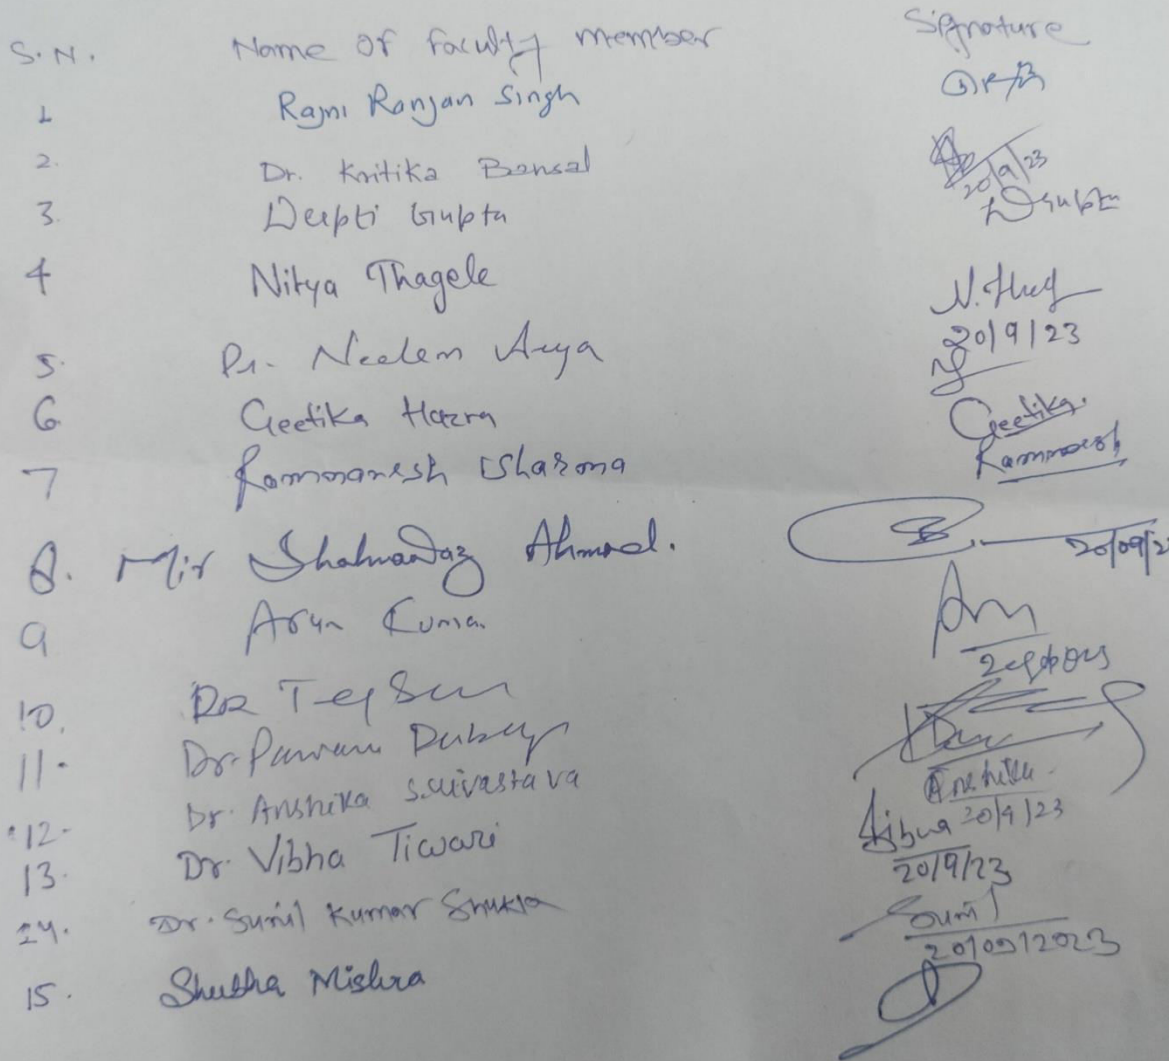 S.N. Name of faculty member Signature
1 Rajni Ranjan Singh
2. Dr. Kritika Bansal 20/9/23
3. Deepti Gupta DGupta
4 Nitya Thagele N. Thag
20/9/23
5. Dr. Neelam Arya
6 Geetika Hazra Geetika.
7 Rammanesh Sharma Rammanesh
8. Mir Shahnawaz Ahmad. 20/09/2
9 Arun Kumar
10. Tej
11. Dr. Pawan Dubey
12. Dr. Anshika Srivastava Anshika
20/9/23
13. Dr. Vibha Tiwari Vibha
20/9/23
14. Dr. Sunil Kumar Shukla Sunil
20/09/2023
15. Shubha Mishra